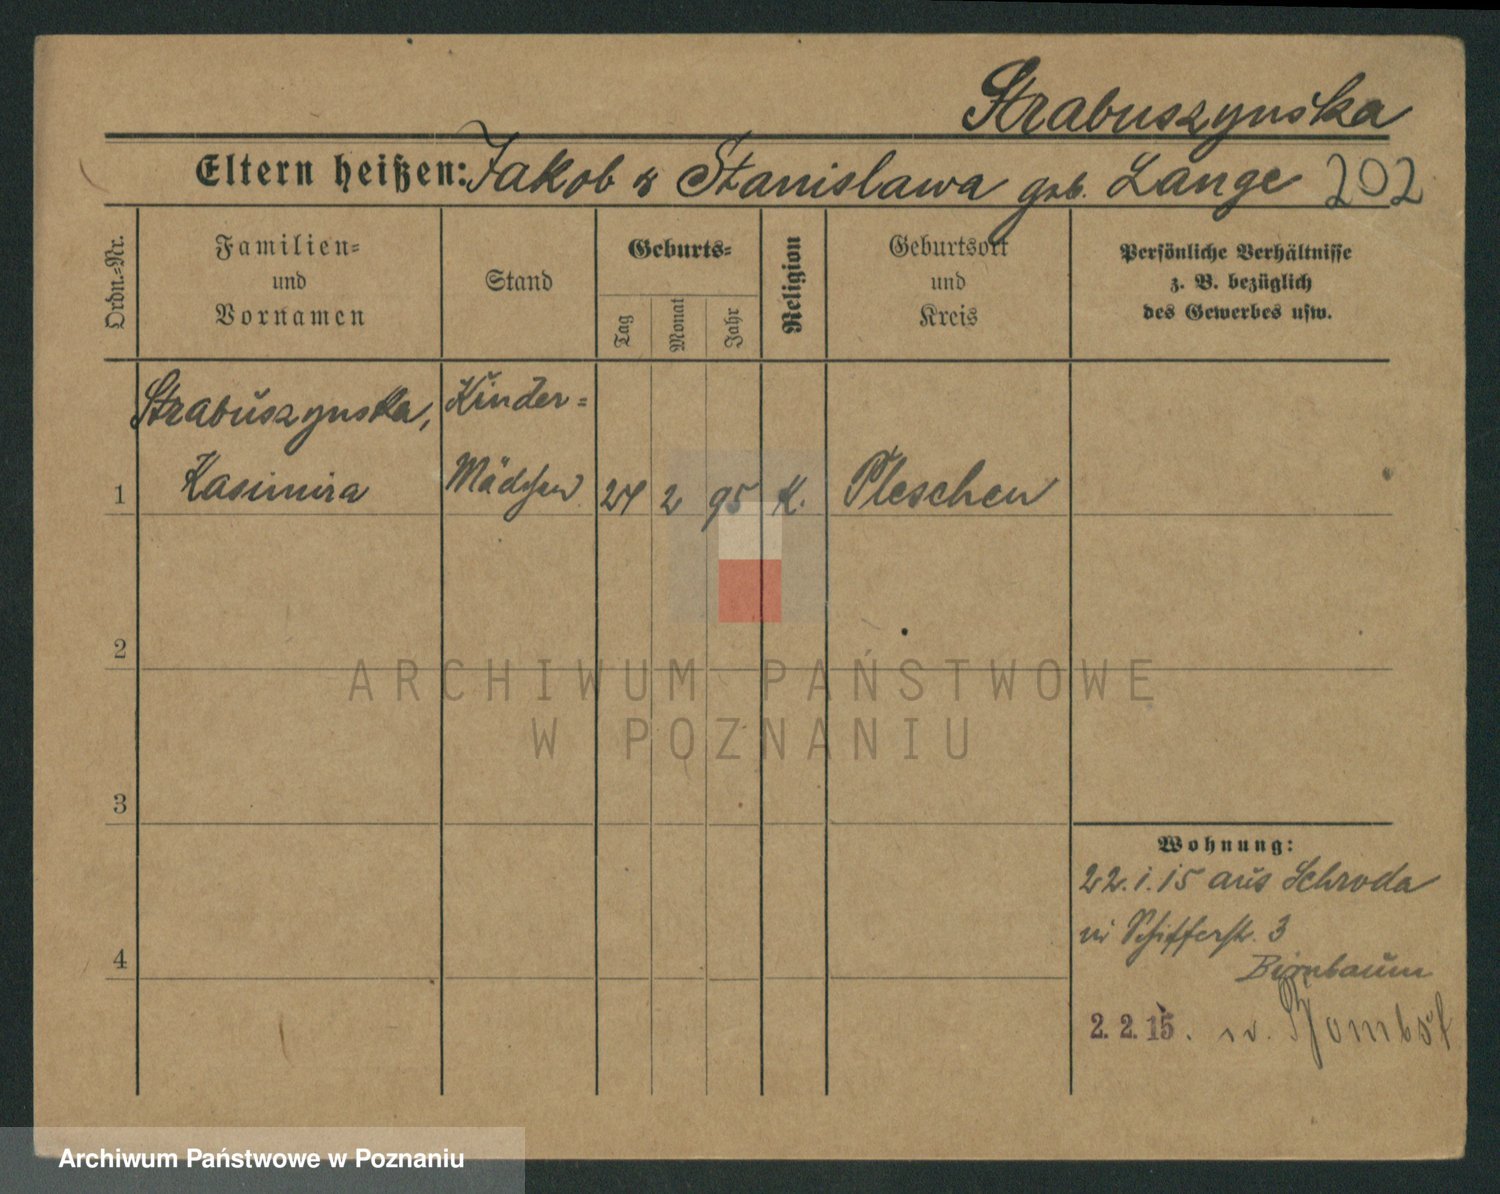 Strabuszynska
Eltern heißen: Jakob & Stanislawa geb. Lange 202
Ordn.=Nr.
Familien=
und
Vornamen
Stand
Geburts=
Tag
Monat
Jahr
Religion
Geburtsort
und
Kreis
Persönliche Verhältnisse
z. B. bezüglich
des Gewerbes usw.
Strabuszynska, Kinder=
1 Kasimira Mädchen 24 2 95 K. Pleschen
2
3
4
Wohnung:
22.1.15 aus Schroda
Schifferstr. 3
Birnbaum
2.2.15.
ARCHIWUM PAŃSTWOWE
W POZNANIU
Archiwum Państwowe w Poznaniu